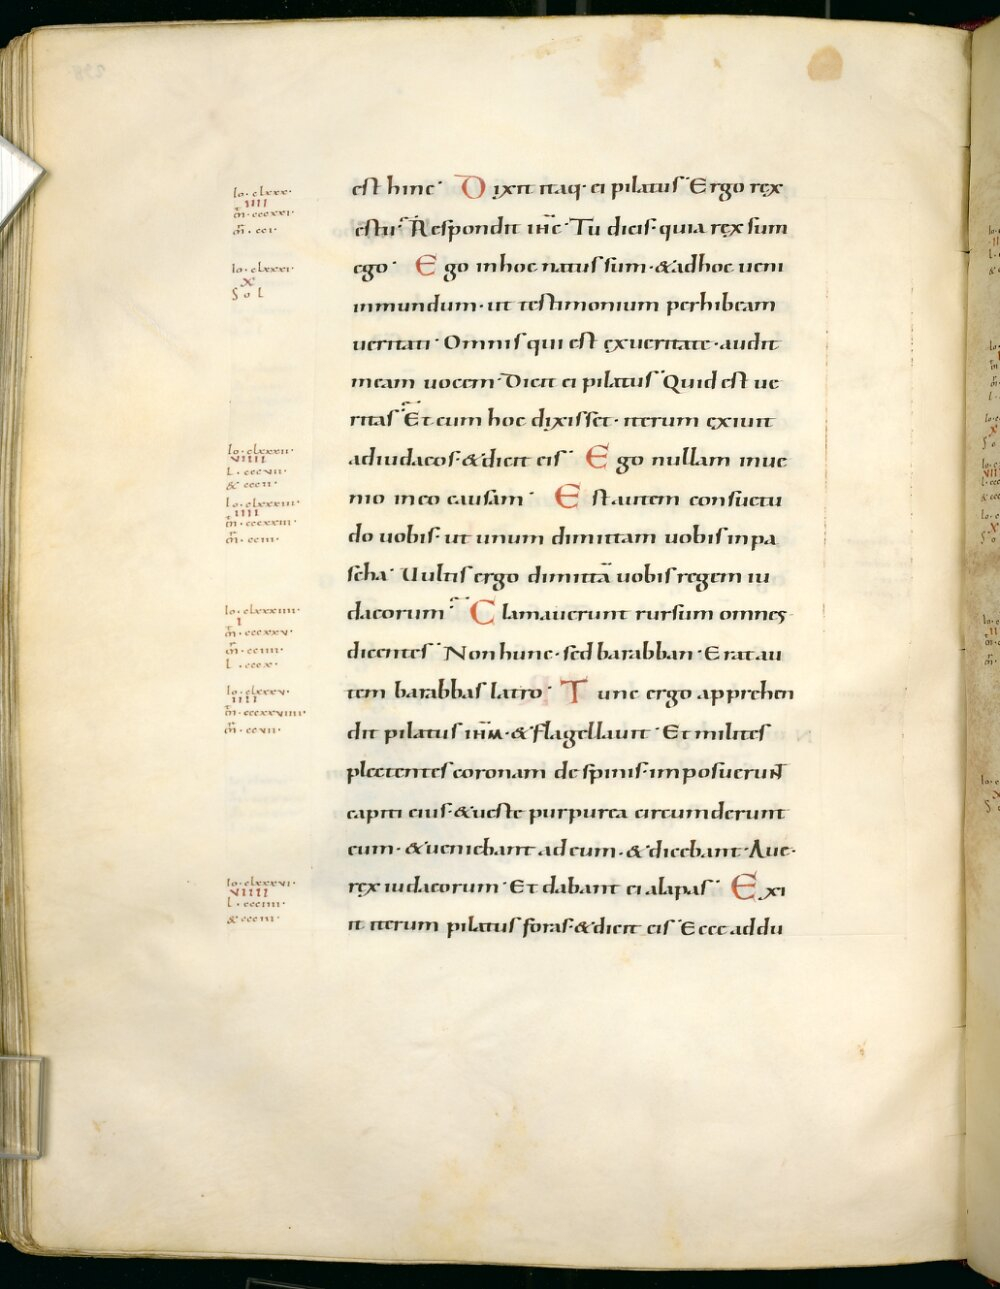 Io· clxxx·
IIII
m̄· cccxxi·
m̄· cci·
Io· clxxxi·
X
Sol
Io· clxxxii·
VIIII
L· cccvii·
& cccii·
Io· clxxxiii·
IIII
m̄· cccxxiii·
m̄· cciii·
Io· clxxxiiii·
I
m̄· cccxxv·
m̄· cciiii·
L· cccx·
Io· clxxxv·
IIII
m̄· cccxxviiii·
m̄· ccvii·
Io· clxxxvi·
VIIII
L· ccciiii·
& ccciii·
est hinc· Dixit itaq· ei pilatus· Ergo rex
es tu· Respondit ihc̄· Tu dicis· quia rex sum
ego· Ego in hoc natus sum· & ad hoc ueni
in mundum· ut testimonium perhibeam
ueritati· Omnis qui est ex ueritate· audit
meam uocem· Dicit ei pilatus· Quid est ue
ritas· Et cum hoc dixisset· iterum exiuit
ad iudaeos· & dicit eis· Ego nullam inue
nio in eo causam· Est autem consuetu
do uobis· ut unum dimittam uobis in pa
scha· Uultis ergo dimittā uobis regem iu
daeorum· Clamauerunt rursum omnes
dicentes· Non hunc· sed barabban· Erat au
tem barabbas latro· Tunc ergo apprehen
dit pilatus ihm̄· & flagellauit· Et milites
plectentes coronam de spinis· imposuerunt
capiti eius· & ueste purpurea circumderunt
eum· & ueniebant ad eum· & dicebant· Aue·
rex iudaeorum· Et dabant ei alapas· Exi
it iterum pilatus foras· & dicit eis· Ecce addu